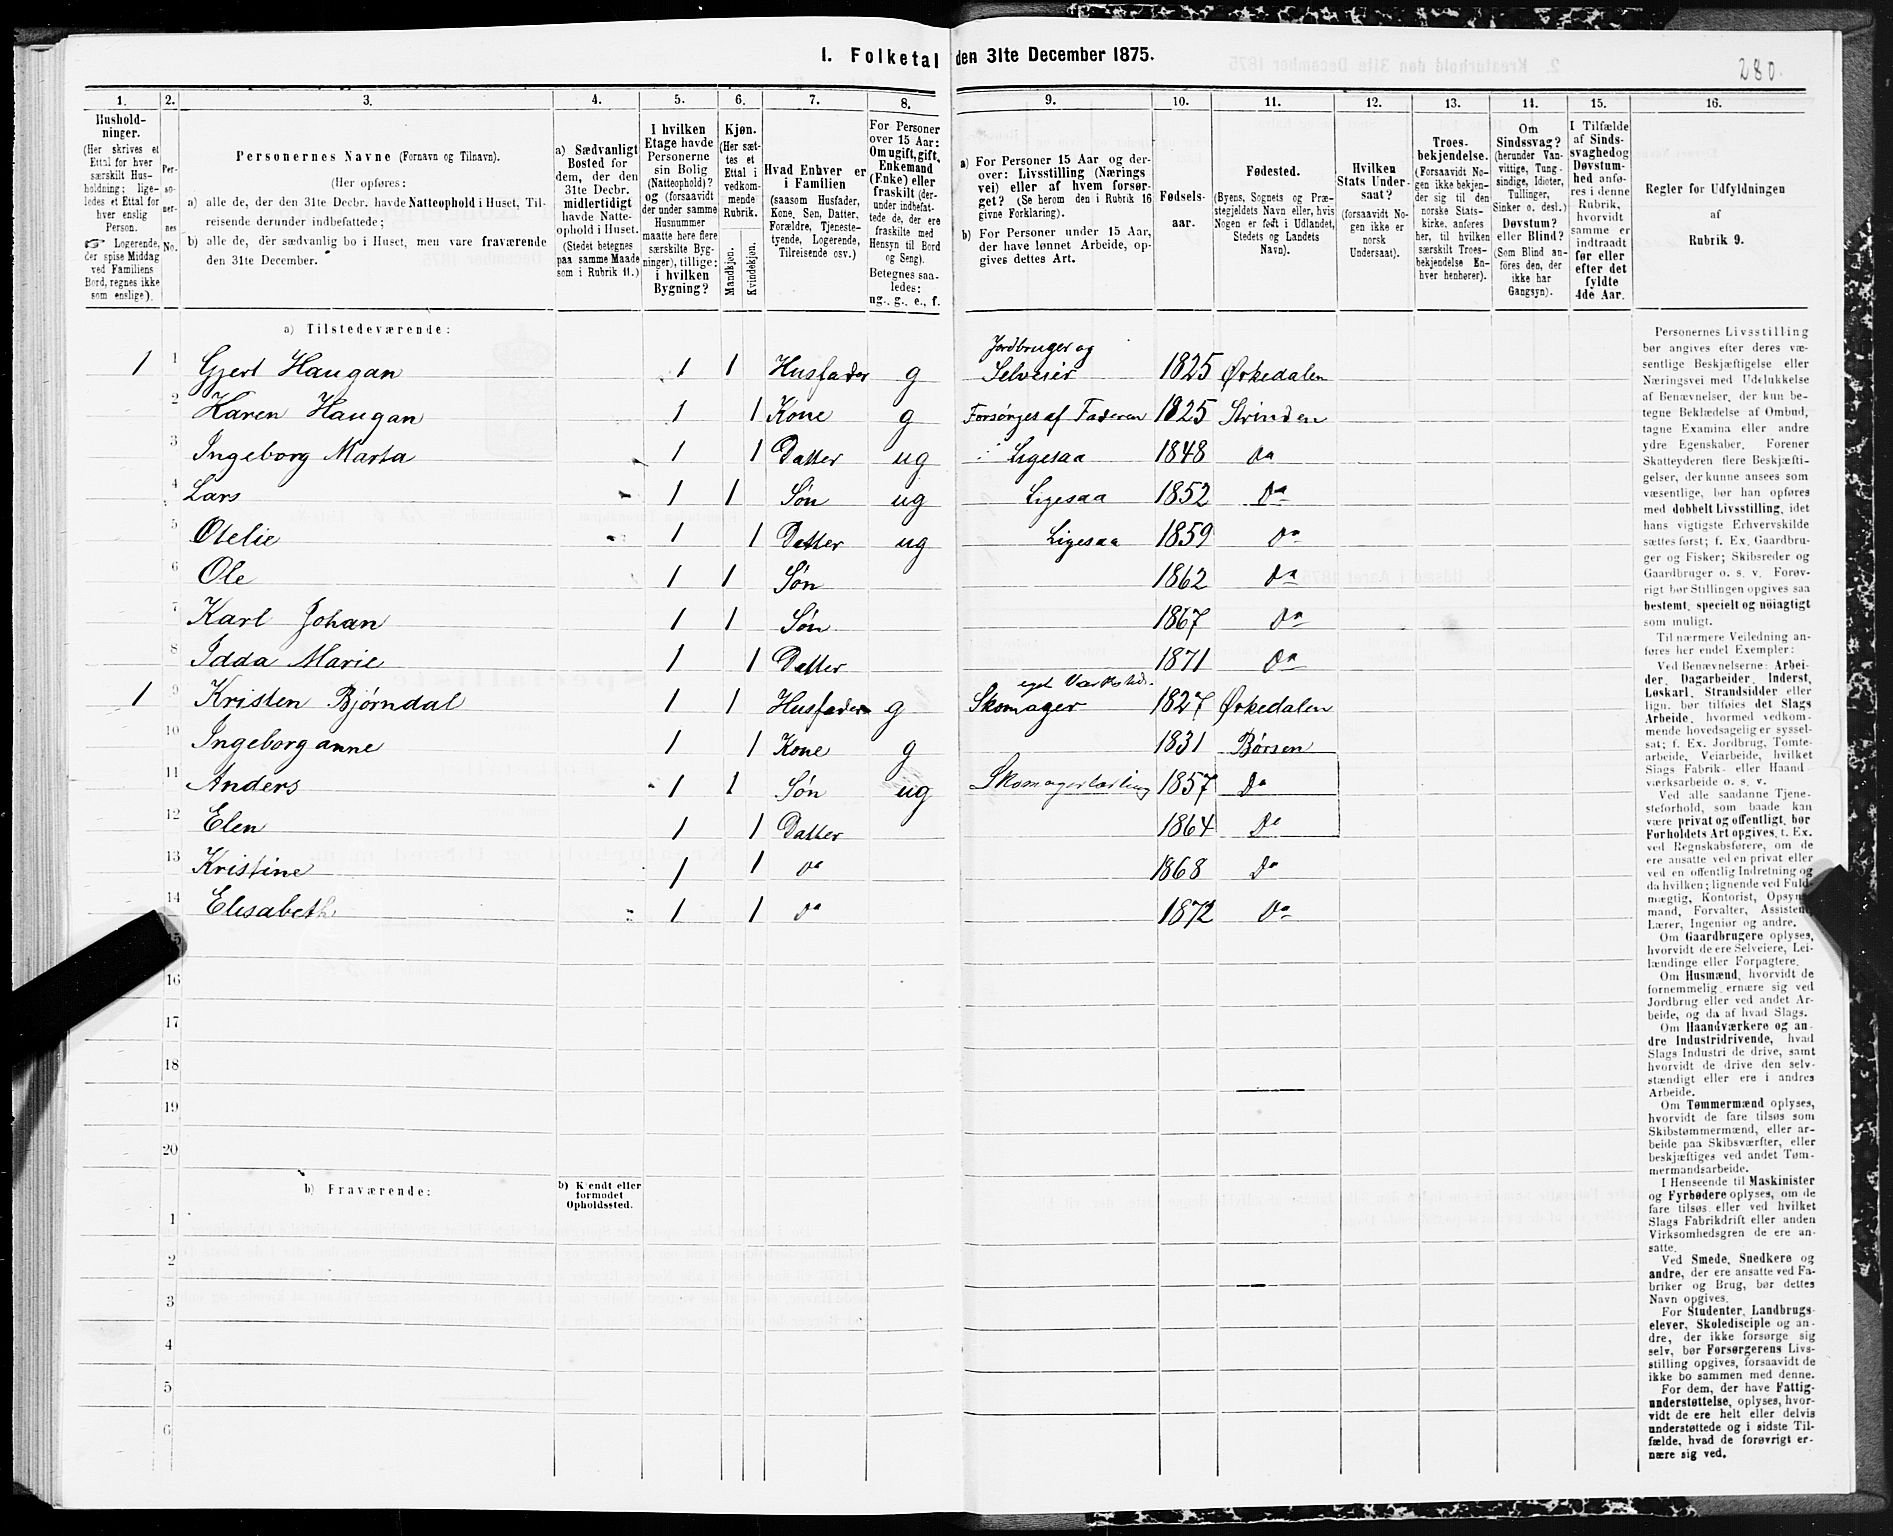 1. Folketal den 31te December 1875.
280.
1. 2. 3. 4. 5. 6. 7. 8. 9. 10. 11. 12. 13. 14. 15. 16.
Hushold-
ninger.
(Her skrives et
Ettal for hver
særskilt Hus-
holdning; lige-
ledes et Ettal for
hver enslig
Person.
☞ Logerende,
der spise Middag
ved Familiens
Bord, regnes ikke
som enslige).
Per-
so-
ner-
nes
No.
Personernes Navne (Fornavn og Tilnavn).
(Her opføres:
a) alle de, der den 31te Decbr. havde Natteophold i Huset, Til-
reisende derunder indbefattede;
b) alle de, der sædvanlig bo i Huset, men vare fraværende
den 31te December.
a) Sædvanligt
Bosted for
dem, der den
31te Decbr.
midlertidigt
havde Natte-
ophold i Huset.
(Stedet betegnes
paa samme Maade
som i Rubrik 11.)
I hvilken
Etage havde
Personerne
sin Bolig
(Natteophold)?
og (forsaavidt
der under samme
Husnummer
maatte høre flere
særskilte Byg-
ninger), tillige:
i hvilken
Bygning?
Kjøn.
(Her sæt-
tes et
Ettal i
vedkom-
mende
Rubrik.
Mandkjøn.
Kvindekjøn.
Hvad Enhver er
i Familien
(saasom Husfader,
Kone, Søn, Datter,
Forældre, Tjeneste-
tyende, Logerende,
Tilreisende osv.)
For Personer
over 15 Aar:
Om ugift, gift,
Enkemand
(Enke) eller
fraskilt (der-
under indbefat-
tede de, der ere
fraskilte med
Hensyn til Bord
og Seng).
Betegnes saa-
ledes:
ug., g., e., f.
a) For Personer 15 Aar og der-
over: Livsstilling (Nærings
vei) eller af hvem forsør-
get? (Se herom den i Rubrik 16
givne Forklaring).
b) For Personer under 15 Aar,
der have lønnet Arbeide, op-
gives dettes Art.
Fødsels-
aar.
Fødested.
(Byens, Sognets og Præ-
stegjeldets Navn eller, hvis
Nogen er født i Udlandet,
Stedets og Landets
Navn).
Hvilken
Stats Under-
saat?
(forsaavidt No-
gen ikke er
norsk
Undersaat).
Troes-
bekjendelse.
(Forsaavidt No-
gen ikke bekjen-
der sig til den
norske Stats-
kirke, anføres
her, til hvilken
særskilt Troes-
bekjendelse En-
hver henhører).
Om
Sindssvag?
(herunder Van-
vittige, Tung-
sindige, Idioter,
Tullinger,
Sinker o. desl.)
Døvstum?
eller Blind?
(Som Blind an-
føres den, der
ikke har
Gangsyn).
I Tilfælde
af Sinds-
svaghed og
Døvstum-
hed anfø-
res i denne
Rubrik,
hvorvidt
samme er
indtraadt
før eller
efter det
fyldte
4de Aar.
Regler for Udfyldningen
af
Rubrik 9.
a) Tilstedeværende:
1 1 Gjert Haugan 1 1 Husfader g Jordbruger og Selveier 1825 Ørkedalen
2 Karen Haugan 1 1 Kone g Forsørges af Faderen 1825 Strinden
3 Ingeborg Marta 1 1 Datter ug Ligesaa 1848 Do
4 Lars 1 1 Søn ug Ligesaa 1852 Do
5 Otelie 1 1 Datter ug Ligesaa 1859 Do
6 Ole 1 1 Søn 1862 Do
7 Karl Johan 1 1 Søn 1867 Do
8 Idda Marie 1 1 Datter 1871 Do
1 9 Kristen Bjørndal 1 1 Husfader g Skomager eget Værksted. 1827 Ørkedalen
10 Ingeborganne 1 1 Kone g 1831 Børsen
11 Anders 1 1 Søn ug Skomagerlærling 1857 Do
12 Elen 1 1 Datter 1864 Do
13 Kristine 1 1 Do 1868 Do
14 Elisabeth 1 1 Do 1872 Do
15
16
17
18
19
20
b) Fraværende:
b) Kjendt eller
formodet
Opholdssted.
1
2
3
4
5
6
Personernes Livsstilling
bør angives efter deres væ-
sentlige Beskjæftigelse eller
Næringsvei med Udelukkelse
af Benævnelser, der kun be-
tegne Beklædelse af Ombud,
tagne Examina eller andre
ydre Egenskaber. Forener
Skatteyderen flere Beskjæfti-
gelser, der kunne ansees som
væsentlige, bør han opføres
med dobbelt Livsstilling, idet
hans vigtigste Erhvervskilde
sættes først; f. Ex. Gaardbru-
ger og Fisker; Skibsreder og
Gaardbruger o. s. v. Forøv-
rigt bør Stillingen opgives saa
bestemt, specielt og nöiagtigt
som muligt.
Til nærmere Veiledning an-
føres her endel Exempler:
Ved Benævnelserne: Arbei-
der, Dagarbeider, Inderst,
Løskarl, Strandsidder eller
lign. bør tilføies det Slags
Arbeide, hvormed vedkom-
mende hovedsagelig er syssel-
sat; f. Ex. Jordbrug, Tomte-
arbeide, Veiarbeide, hvilket
Slags Fabrik- eller Haand-
værksarbeide o. s. v.
Ved alle saadanne Tjene-
steforhold, som baade kan
være privat og offentligt, bør
Forholdets Art opgives, t. Ex.
ved Regnskabsførere, om de
ere ansatte ved en privat eller
ved en offentlig Indretning og
da hvilken; lignende ved Fuld-
mægtig, Kontorist, Opsyns-
mand, Forvalter, Assistent,
Lærer, Ingeniør og andre.
Om Gaardbrugere oplyses,
hvorvidt de ere Selveiere, Lei-
lændinge eller Forpagtere.
Om Husmænd, hvorvidt de
fornemmelig ernære sig ved
Jordbrug eller ved andet Ar-
beide, og da af hvad Slags.
Om Haandværkere og an-
dre Industridrivende, hvad
Slags Industri de drive, samt
hvorvidt de drive den selv-
stændigt eller ere i andres
Arbeide.
Om Tømmermænd oplyses,
hvorvidt de fare tilsøs som
Skibstømmermænd, eller ar-
beide paa Skibsværfter, eller
beskjæftiges ved andet Tøm-
mermandsarbeide.
I Henseende til Maskinister
og Fyrbødere oplyses, om de
fare tilsøs eller ved hvilket
Slags Fabrikdrift eller anden
Virksomhedsgren de ere an-
satte.
Ved Smede, Snedkere og
andre, der ere ansatte ved Fa-
briker og Brug, bør dettes
Navn opgives.
For Studenter, Landbrugs-
elever, Skoledisciple og an-
dre, der ikke forsørge sig
selv, bør Forsørgerens Livs-
stilling opgives, forsaavidt de
ikke bo sammen med denne.
For dem, der have Fattig-
understøttelse, oplyses, hvor-
vidt de ere helt eller delvis
understøttede og i sidste Til-
fælde, hvad de forøvrigt er-
nære sig ved.